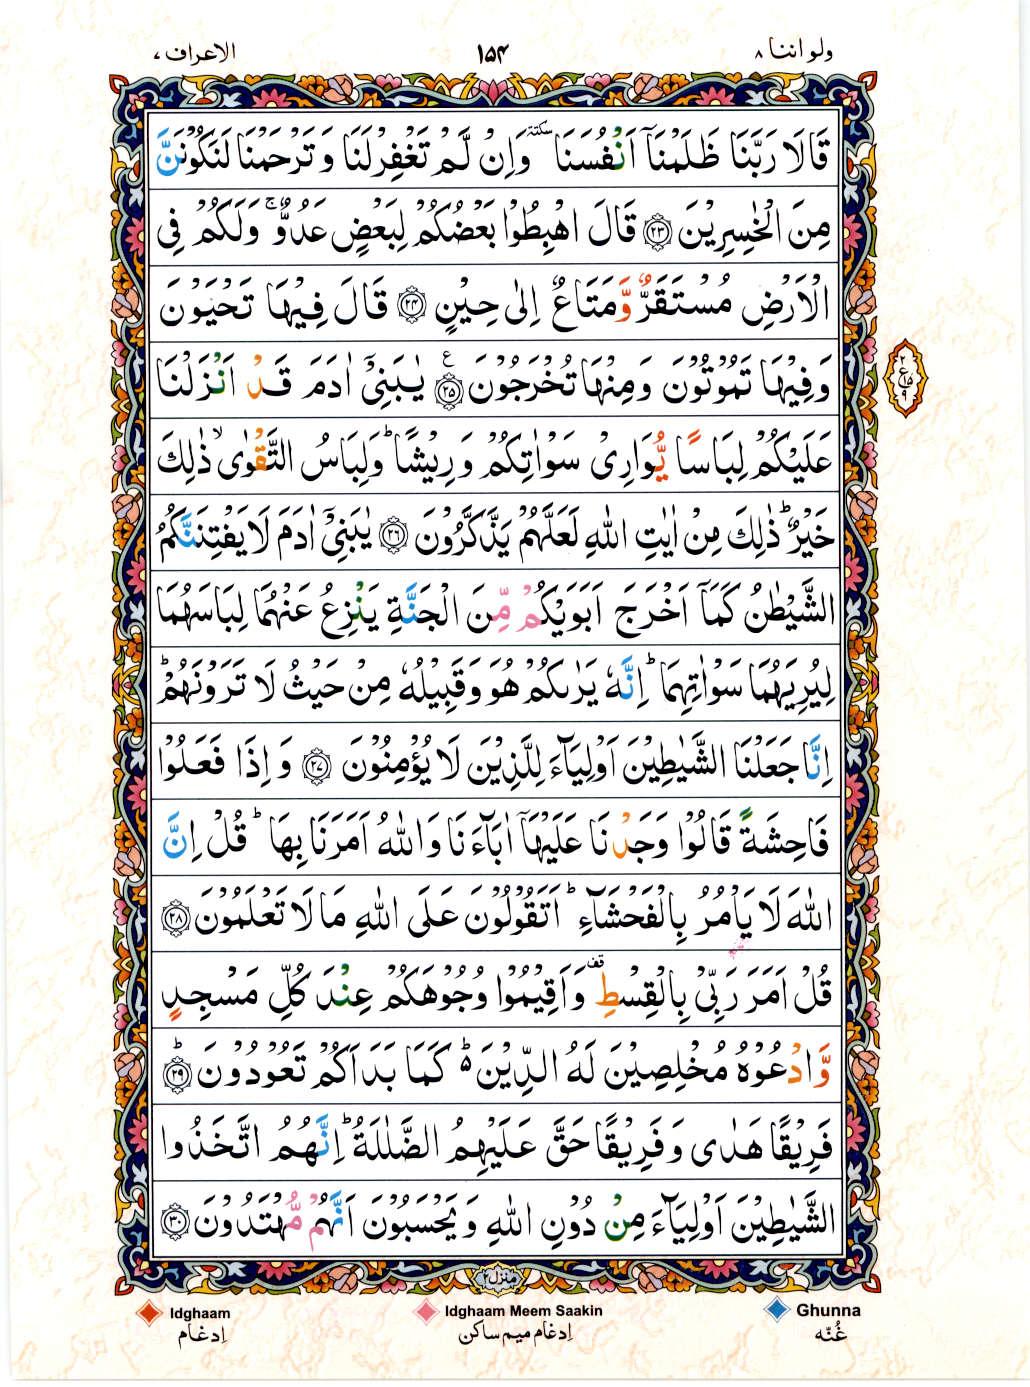 ولو اننا ۸
۱۵۴
الاعراف ۷
قَالَا رَبَّنَا ظَلَمْنَاۤ اَنْفُسَنَا ٚ سکتة وَاِنْ لَّمْ تَغْفِرْلَنَا وَ تَرْحَمْنَا لَنَكُوْنَنَّ
مِنَ الْخٰسِرِيْنَ ﴿۲۳﴾ قَالَ اهْبِطُوْا بَعْضُكُمْ لِبَعْضٍ عَدُوٌّ ۚ وَلَكُمْ فِى
الْاَرْضِ مُسْتَقَرٌّ وَّمَتَاعٌ اِلٰى حِيْنٍ ﴿۲۴﴾ قَالَ فِيْهَا تَحْيَوْنَ
وَفِيْهَا تَمُوْتُوْنَ وَمِنْهَا تُخْرَجُوْنَ ﴿۲۵﴾ ع يٰبَنِىْۤ اٰدَمَ قَدْ اَنْزَلْنَا
عَلَيْكُمْ لِبَاسًا يُّوَارِىْ سَوْاٰتِكُمْ وَ رِيْشًا ؕ وَلِبَاسُ التَّقْوٰى ۙ ذٰلِكَ
خَيْرٌ ؕ ذٰلِكَ مِنْ اٰيٰتِ اللّٰهِ لَعَلَّهُمْ يَذَّكَّرُوْنَ ﴿۲۶﴾ يٰبَنِىْۤ اٰدَمَ لَا يَفْتِنَنَّكُمُ
الشَّيْطٰنُ كَمَاۤ اَخْرَجَ اَبَوَيْكُمْ مِّنَ الْجَنَّةِ يَنْزِعُ عَنْهُمَا لِبَاسَهُمَا
لِيُرِيَهُمَا سَوْاٰتِهِمَا ؕ اِنَّهٗ يَرٰىكُمْ هُوَ وَقَبِيْلُهٗ مِنْ حَيْثُ لَا تَرَوْنَهُمْ ؕ
اِنَّا جَعَلْنَا الشَّيٰطِيْنَ اَوْلِيَآءَ لِلَّذِيْنَ لَا يُؤْمِنُوْنَ ﴿۲۷﴾ وَ اِذَا فَعَلُوْا
فَاحِشَةً قَالُوْا وَجَدْنَا عَلَيْهَاۤ اٰبَآءَنَا وَاللّٰهُ اَمَرَنَا بِهَا ؕ قُلْ اِنَّ
اللّٰهَ لَا يَاْمُرُ بِالْفَحْشَآءِ ؕ اَتَقُوْلُوْنَ عَلَى اللّٰهِ مَا لَا تَعْلَمُوْنَ ﴿۲۸﴾
قُلْ اَمَرَ رَبِّىْ بِالْقِسْطِ قف وَاَقِيْمُوْا وُجُوْهَكُمْ عِنْدَ كُلِّ مَسْجِدٍ
وَّادْعُوْهُ مُخْلِصِيْنَ لَهُ الدِّيْنَ ؕ كَمَا بَدَاَكُمْ تَعُوْدُوْنَ ؕ ﴿۲۹﴾
فَرِيْقًا هَدٰى وَ فَرِيْقًا حَقَّ عَلَيْهِمُ الضَّلٰلَةُ ؕ اِنَّهُمُ اتَّخَذُوا
الشَّيٰطِيْنَ اَوْلِيَآءَ مِنْ دُوْنِ اللّٰهِ وَ يَحْسَبُوْنَ اَنَّهُمْ مُّهْتَدُوْنَ ﴿۳۰﴾
۲
ع ۱۵
۹
منزل ۲
Ghunna
غُنّه
Idghaam Meem Saakin
اِدغام میم ساکن
Idghaam
اِدغام